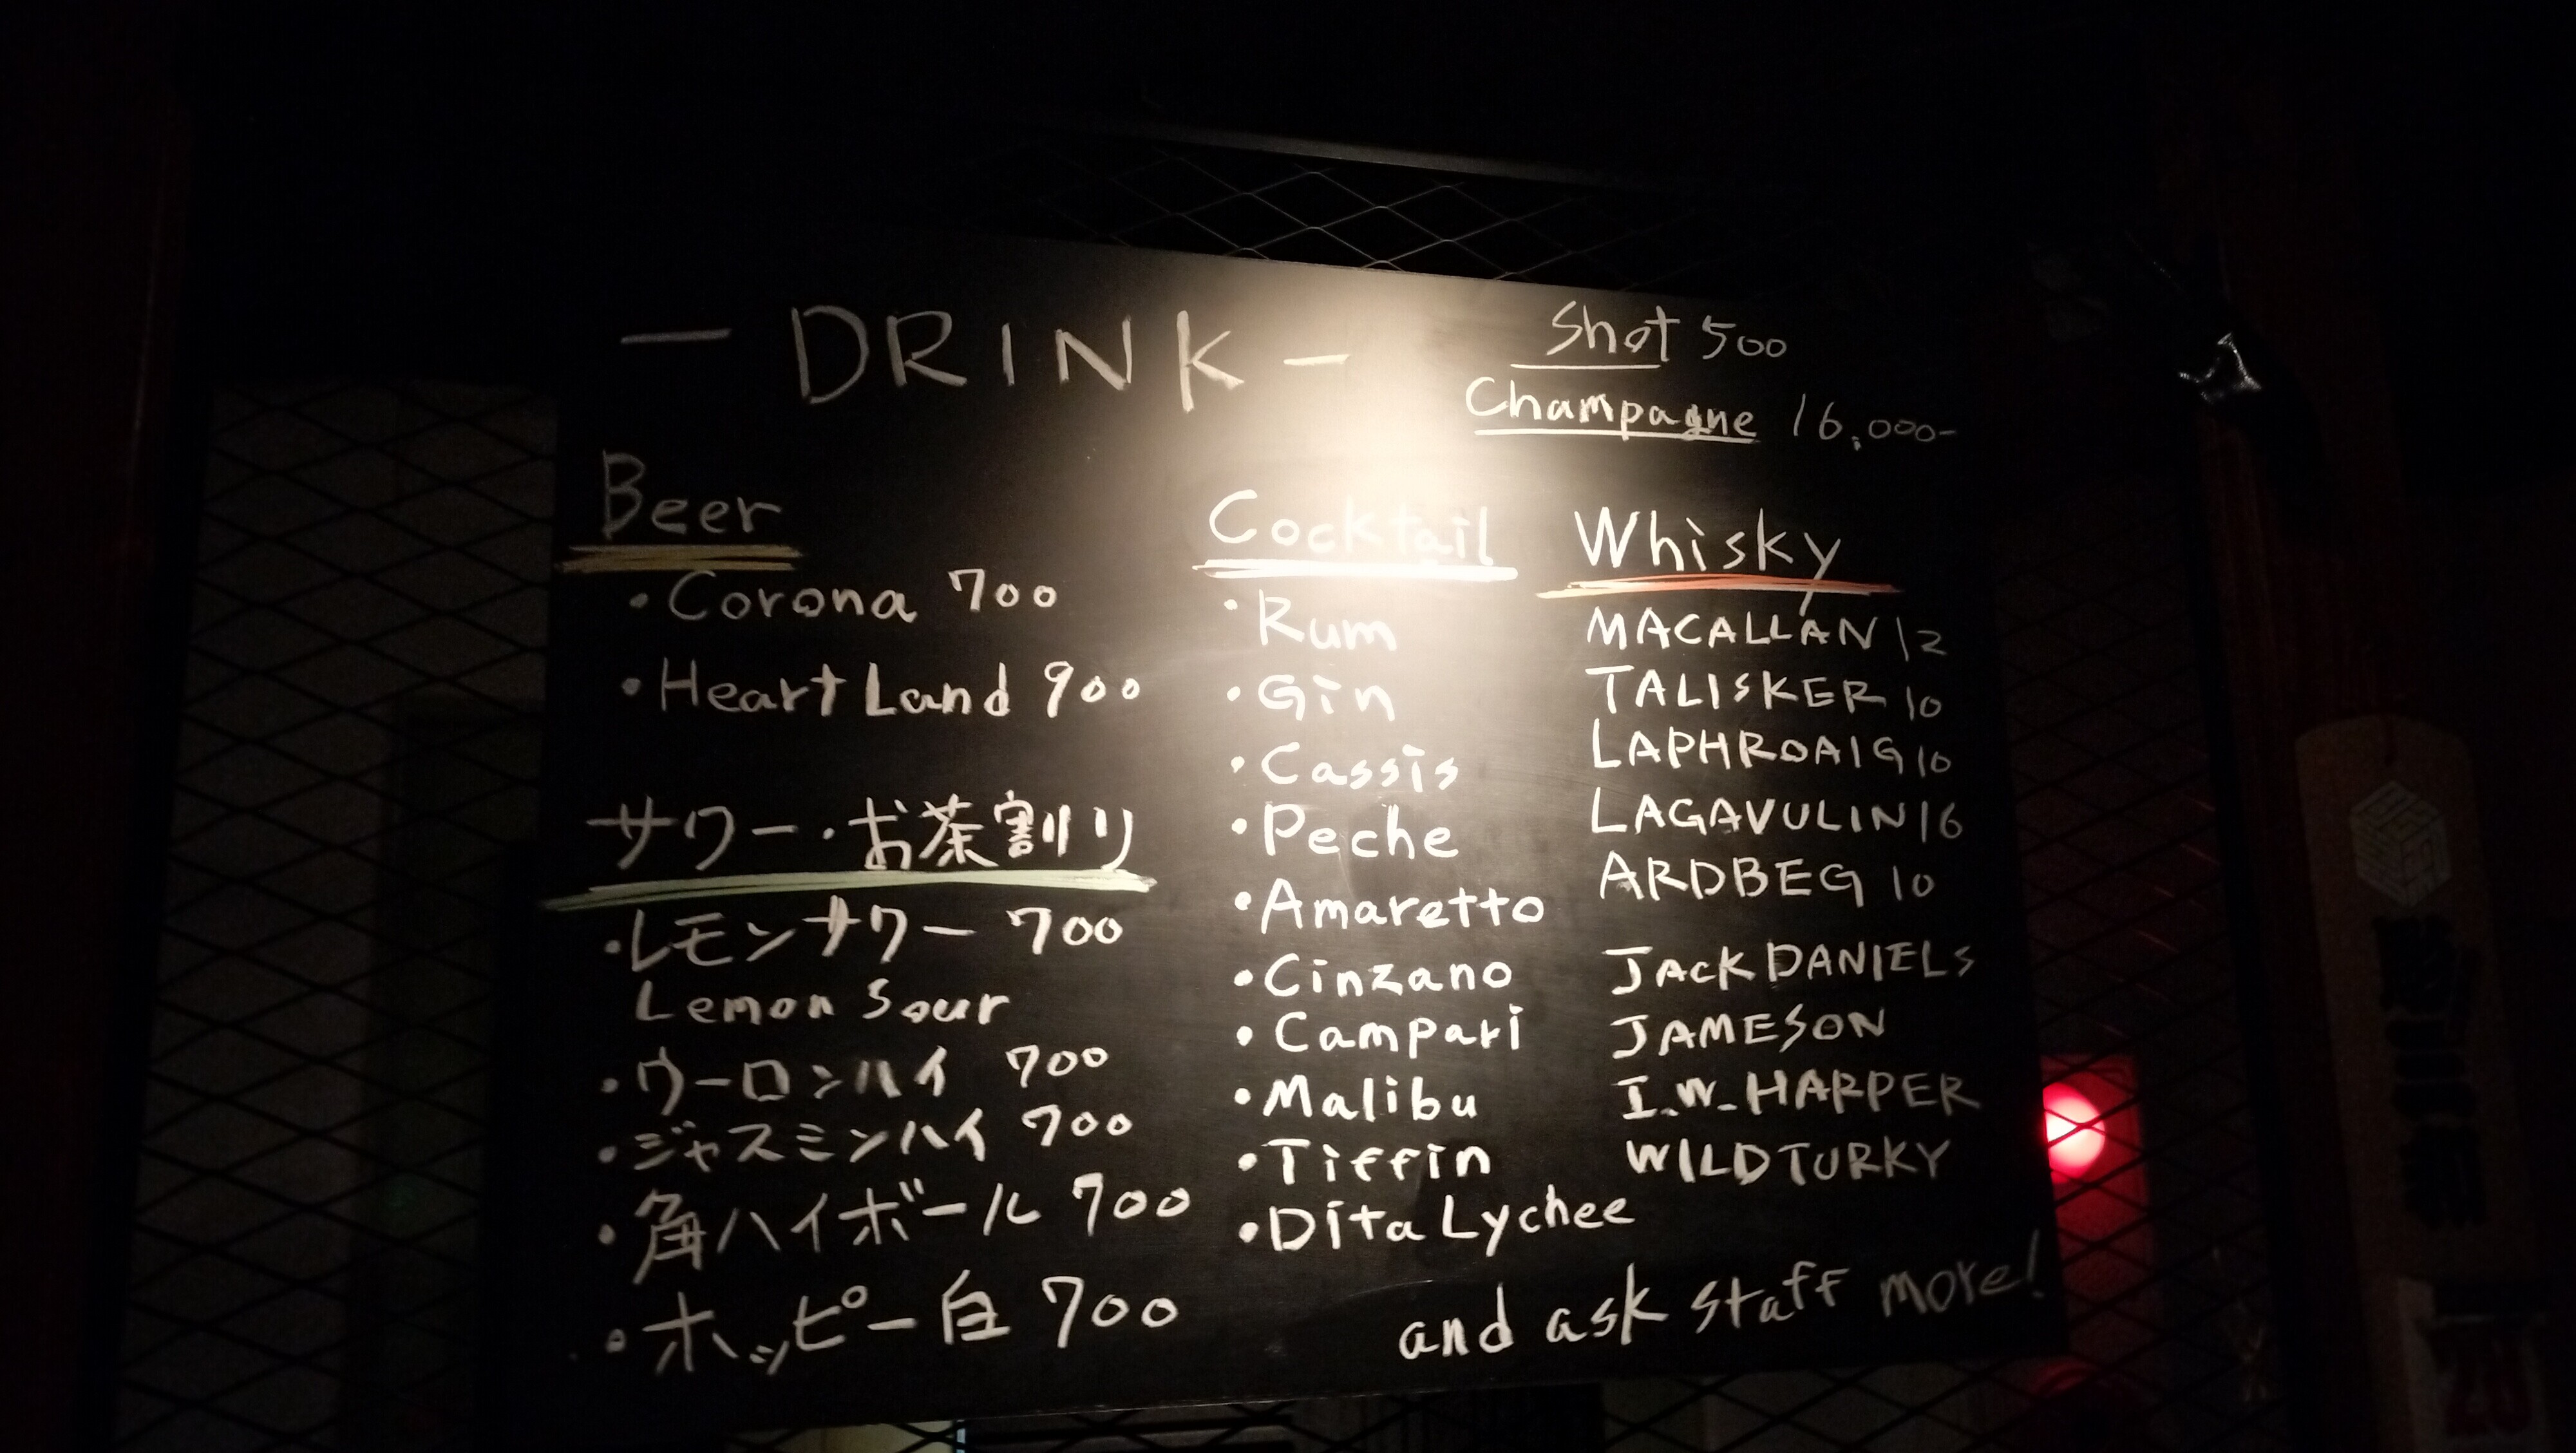 — DRINK —
Shot 500
Champagne 16,000-
Beer
・Corona 700
・Heart Land 900
サワー・お茶割り
・レモンサワー 700
Lemon Sour
・ウーロンハイ 700
・ジャスミンハイ 700
・角ハイボール 700
・ホッピー白 700
Cocktail
・Rum
・Gin
・Cassis
・Peche
・Amaretto
・Cinzano
・Campari
・Malibu
・Tiffin
・Dita Lychee
Whisky
MACALLAN 12
TALISKER 10
LAPHROAIG 10
LAGAVULIN 16
ARDBEG 10
JACK DANIELS
JAMESON
I.W. HARPER
WILD TURKY
and ask staff more!